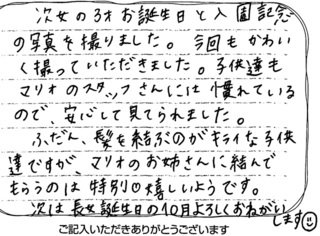 次女の3才お誕生日と入園記念
の写真を撮りました。今回もかわい
く撮っていただきました。子供達も
マリオのスタッフさんには慣れている
ので、安心して見てられました。
ふだん、髪を結ぶのがキライな子供
達ですが、マリオのお姉さんに結んで
もらうのは特別嬉しいようです。
次は長女誕生日の10月よろしくおねがい
します
ご記入いただきありがとうございます